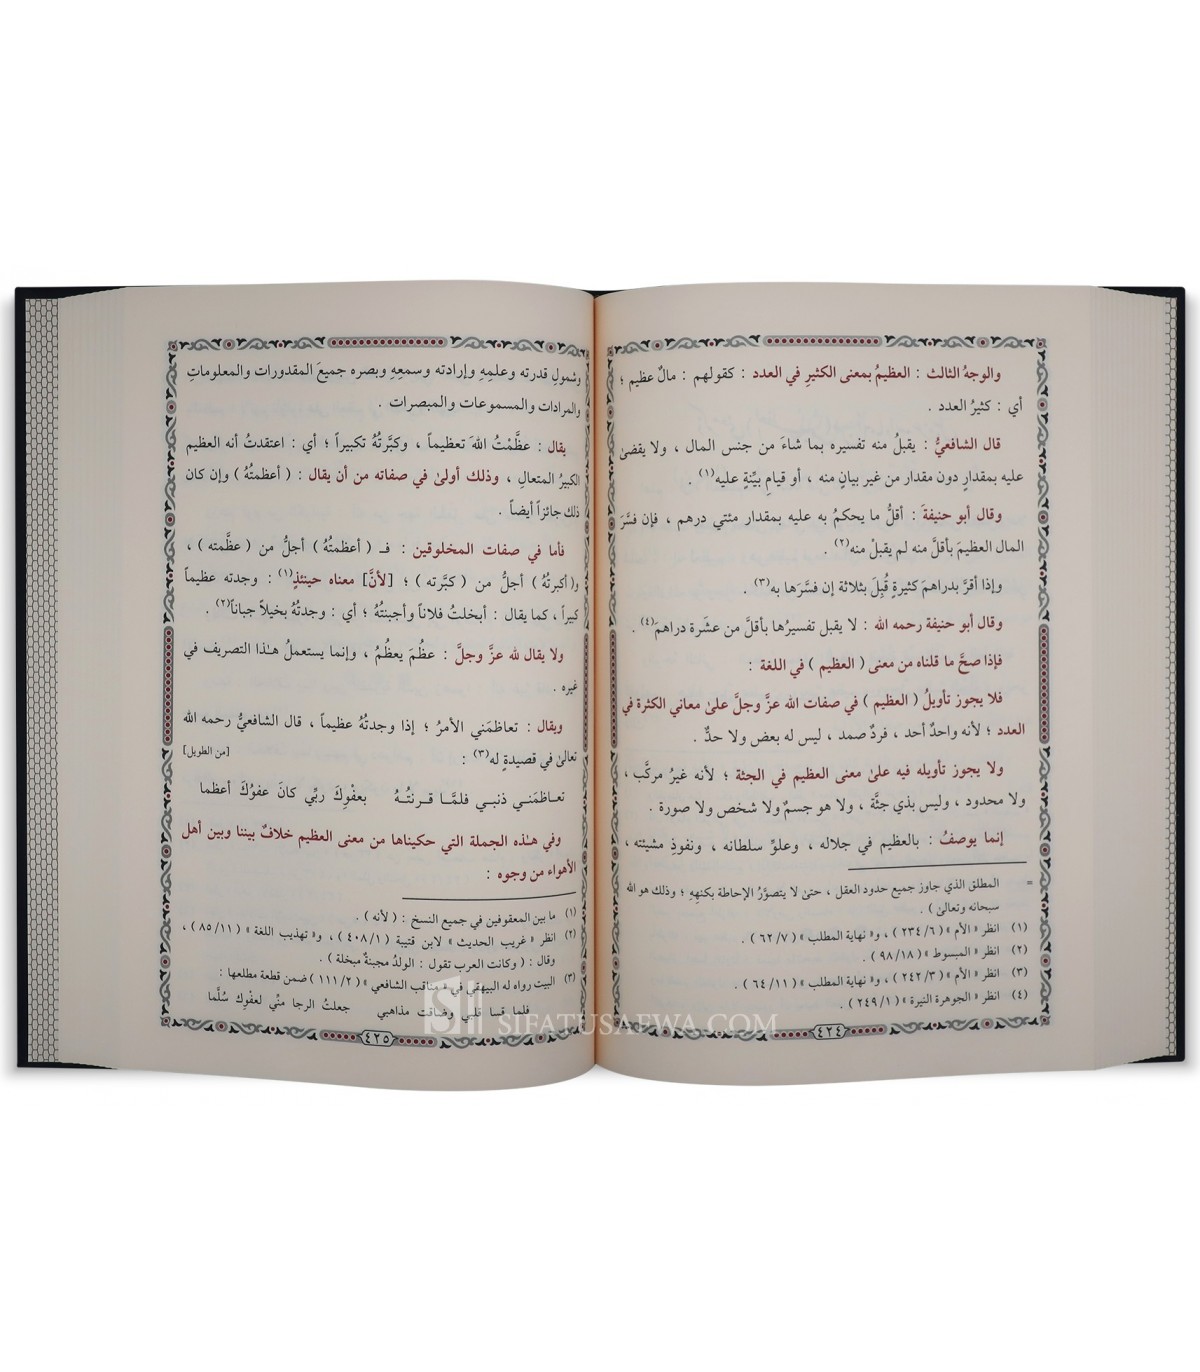 والوجهُ الثالث : العظيمُ بمعنى الكثيرِ في العدد : كقولهم : مالٌ عظيم ؛
أي : كثيرُ العدد .
قال الشافعيُّ : يقبلُ منه تفسيره بما شاءَ من جنس المال ، ولا يقضىٰ
عليه بمقدارٍ دون مقدار من غير بيانٍ منه ، أو قيامِ بيِّنةٍ عليه(١) .
وقال أبو حنيفةَ : أقلُّ ما يحكمُ به عليه بمقدار مئتي درهم ، فإن فسَّرَ
المال العظيمَ بأقلَّ منه لم يقبلْ منه(٢) .
وإذا أقرَّ بدراهمَ كثيرةٍ قُبِلَ بثلاثة إن فسَّرَها به(٣) .
وقال أبو حنيفة رحمه الله : لا يقبل تفسيرُها بأقلَّ من عشَرة دراهمَ(٤) .
فإذا صحَّ ما قلناه من معنى ( العظيم ) في اللغة :
فلا يجوز تأويلُ ( العظيم ) في صفات الله عزَّ وجلَّ علىٰ معاني الكثرة في
العدد ؛ لأنه واحدٌ أحد ، فردٌ صمد ، ليس له بعض ولا حدٌّ .
ولا يجوز تأويله فيه علىٰ معنى العظيم في الجثة ؛ لأنه غيرُ مركَّب ،
ولا محدود ، وليس بذي جثَّة ، ولا هو جسمٌ ولا شخص ولا صورة .
إنما يوصفُ : بالعظيم في جلاله ، وعلوِّ سلطانه ، ونفوذِ مشيئته ،
= المطلق الذي جاوز جميع حدود العقل ، حتىٰ لا يتصوَّرُ الإحاطة بكنهِهِ ؛ وذلك هو الله
سبحانه وتعالىٰ ) .
(١) انظر « الأم » ( ٢٣٤/٦ ) ، و« نهاية المطلب » ( ٦٢/٧ ) .
(٢) انظر « المبسوط » ( ٩٨/١٨ ) .
(٣) انظر « الأم » ( ٢٤٢/٣ ) ، و« نهاية المطلب » ( ٦٤/١١ ) .
(٤) انظر « الجوهرة النيرة » ( ٢٤٩/١ ) .
٤٢٤
وشمولِ قدرته وعلمِهِ وإرادته وسمعِهِ وبصره جميعَ المقدورات والمعلوماتِ
والمرادات والمسموعات والمبصرات .
يقال : عظَّمْتُ اللهَ تعظيماً ، وكبَّرتُهُ تكبيراً ؛ أي : اعتقدتُ أنه العظيم
الكبيرُ المتعالِ ، وذلك أولىٰ في صفاته من أن يقال : ( أعظمتُهُ ) وإن كان
ذلك جائزاً أيضاً .
فأما في صفات المخلوقين : فـ ( أعظمتُهُ ) أجلُّ من ( عظَّمته ) ،
و( أكبرتُهُ ) أجلُّ من ( كبَّرته ) ؛ [لأنَّ] معناه حينئذٍ(١) : وجدته عظيماً
كبيراً ، كما يقال : أبخلتُ فلاناً وأجبنتُهُ ؛ أي : وجدتُهُ بخيلاً جباناً(٢) .
ولا يقال لله عزَّ وجلَّ : عظُمَ يعظُمُ ، وإنما يستعملُ هـٰذا التصريف في
غيره .
ويقال : تعاظمَني الأمرُ ؛ إذا وجدتُهُ عظيماً ، قال الشافعيُّ رحمه الله
تعالىٰ في قصيدةٍ له(٣) : [من الطويل]
تعـاظمَنـي ذنبـي فلمَّـا قـرنتُـهُ بعفْوِكَ ربِّي كانَ عفوُكَ أعظما
وفي هـٰذه الجملة التي حكيناها من معنى العظيم خلافٌ بيننا وبين أهل
الأهواء من وجوه :
(١) ما بين المعقوفين في جميع النسخ : ( لأنه ) .
(٢) انظر « غريب الحديث » لابن قتيبة ( ٤٠٨/١ ) ، و« تهذيب اللغة » ( ٨٥/١١ ) ،
وقال : ( وكانت العرب تقول : الولدُ مجبنةٌ مبخلة ) .
(٣) البيت رواه له البيهقي في « مناقب الشافعي » ( ١١١/٢ ) ضمن قطعة مطلعها :
فلما قسا قلبي وضاقت مذاهبي جعلتُ الرجا منِّي لعفوِك سُلَّما
٤٢٥
SIFATUSAFWA.COM